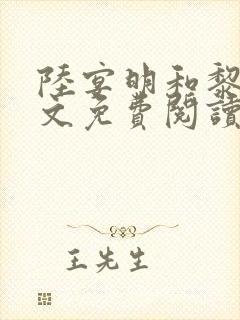 陸宴明和黎
文免費閱讀
王先生